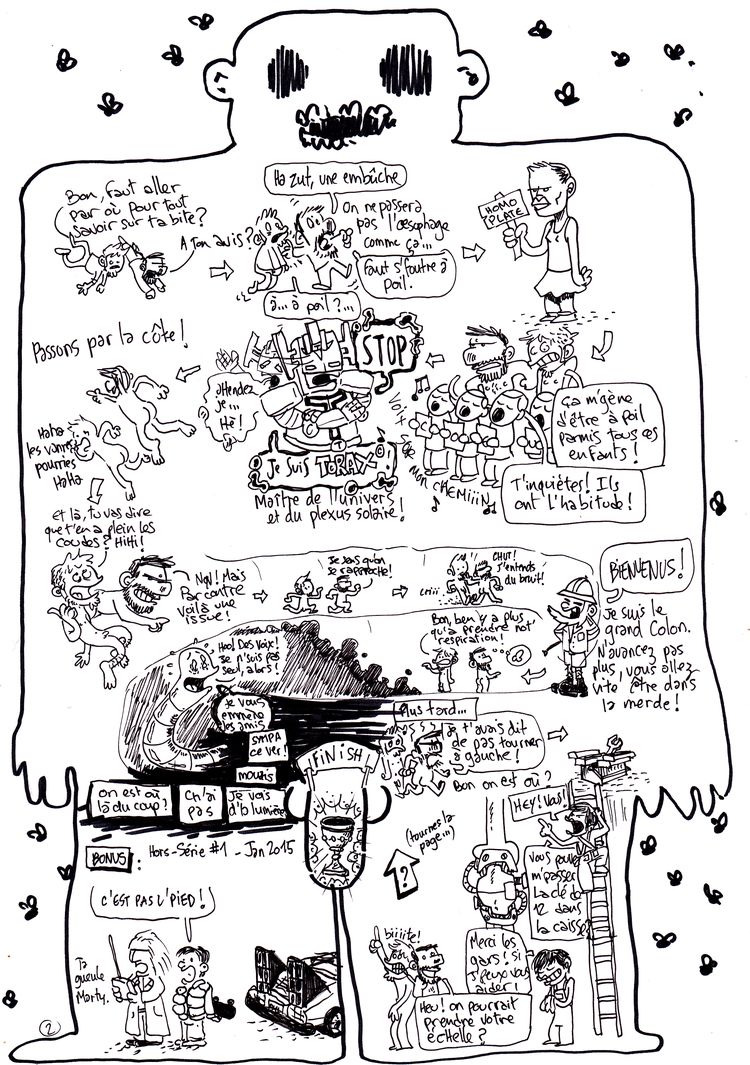 Bon, faut aller
par où pour tout
savoir sur ta bite?
A ton avis?
Ha zut, une embûche
On ne passera
pas l'œsophage
comme ça...
Faut s'foutre à
poil.
à... à poil?...
HOMO
PLATE
ça m'gène
d'être à poil
parmis tous ces
enfants!
T'inquiètes! Ils
ont l'habitude!
Vois
sur
mon CHEMiiiN
STOP
attendez
je...
Hé!
Je suis TORAX
Maître de l'univers
et du plexus solaire!
Passons par la côte!
HaHa
les vannes
pourries
HaHa
Et là, tu vas dire
que t'en a plein les
coudes? Hihi!
Non! Mais
par contre
voilà une
issue!
Je sens qu'on
se rapproche!
CHUT!
J'entends
du bruit!
criii
BIENVENUS!
Je suis le
grand Colon.
N'avancez pas
plus, vous allez
vite être dans
la merde!
Bon, ben y'a plus
qu'a prendre not'
respiration!
Hoo! Des voix!
Je n'suis pas
seul, alors!
Je vous
emmene
les amis
SYMPA
ce ver!
mouais
on est où
là du coup?
Ch'ai
pas
Je vois
d'la lumière
FINISH
Plus tard...
Je t'avais dit
de pas tourner
à gauche!
Bon on est où?
HEY! Vous!
Vous pouvez
m'passer
la clé de
12 dans
la caisse?
Merci les
gars! si
j'peux vous
aider!
Heu! on pourrait
prendre votre
échelle?
biiiite!
?
(tournes la
page...)
BONUS: Hors-Série #1 - Jan 2015
C'EST PAS L'PIED!
Ta
gueule
Marty.
2